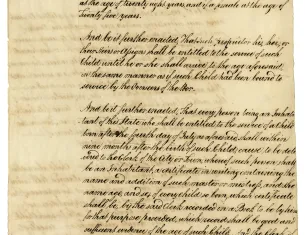 at the age of twenty eight years, and if a female at the age of
twenty five years.
And be it further enacted, That such proprietor his, her, or
their heirs or Assigns shall be entitled to the service of such
Child until he or she shall arrive to the age aforesaid,
in the same manner as if such Child had been bound to
service by the Overseers of the Poor.
And be it further enacted, That every person being an Inhabi-
tant of this State who shall be entitled to the service of a Child
born after the fourth day of July as aforesaid shall within
nine months after the birth of such Child, cause to be deli-
vered to the Clerk of the City or Town whereof such person shall
be an Inhabitant, a certificate in writing containing the
name and addition of such master or mistress, and the
name age and sex of every child so born, which certificate
shall be, by the said Clerk recorded in a Book to be by him
for that purpose provided, which record shall be good and
sufficient evidence of the age of such Child. And the Clerk of